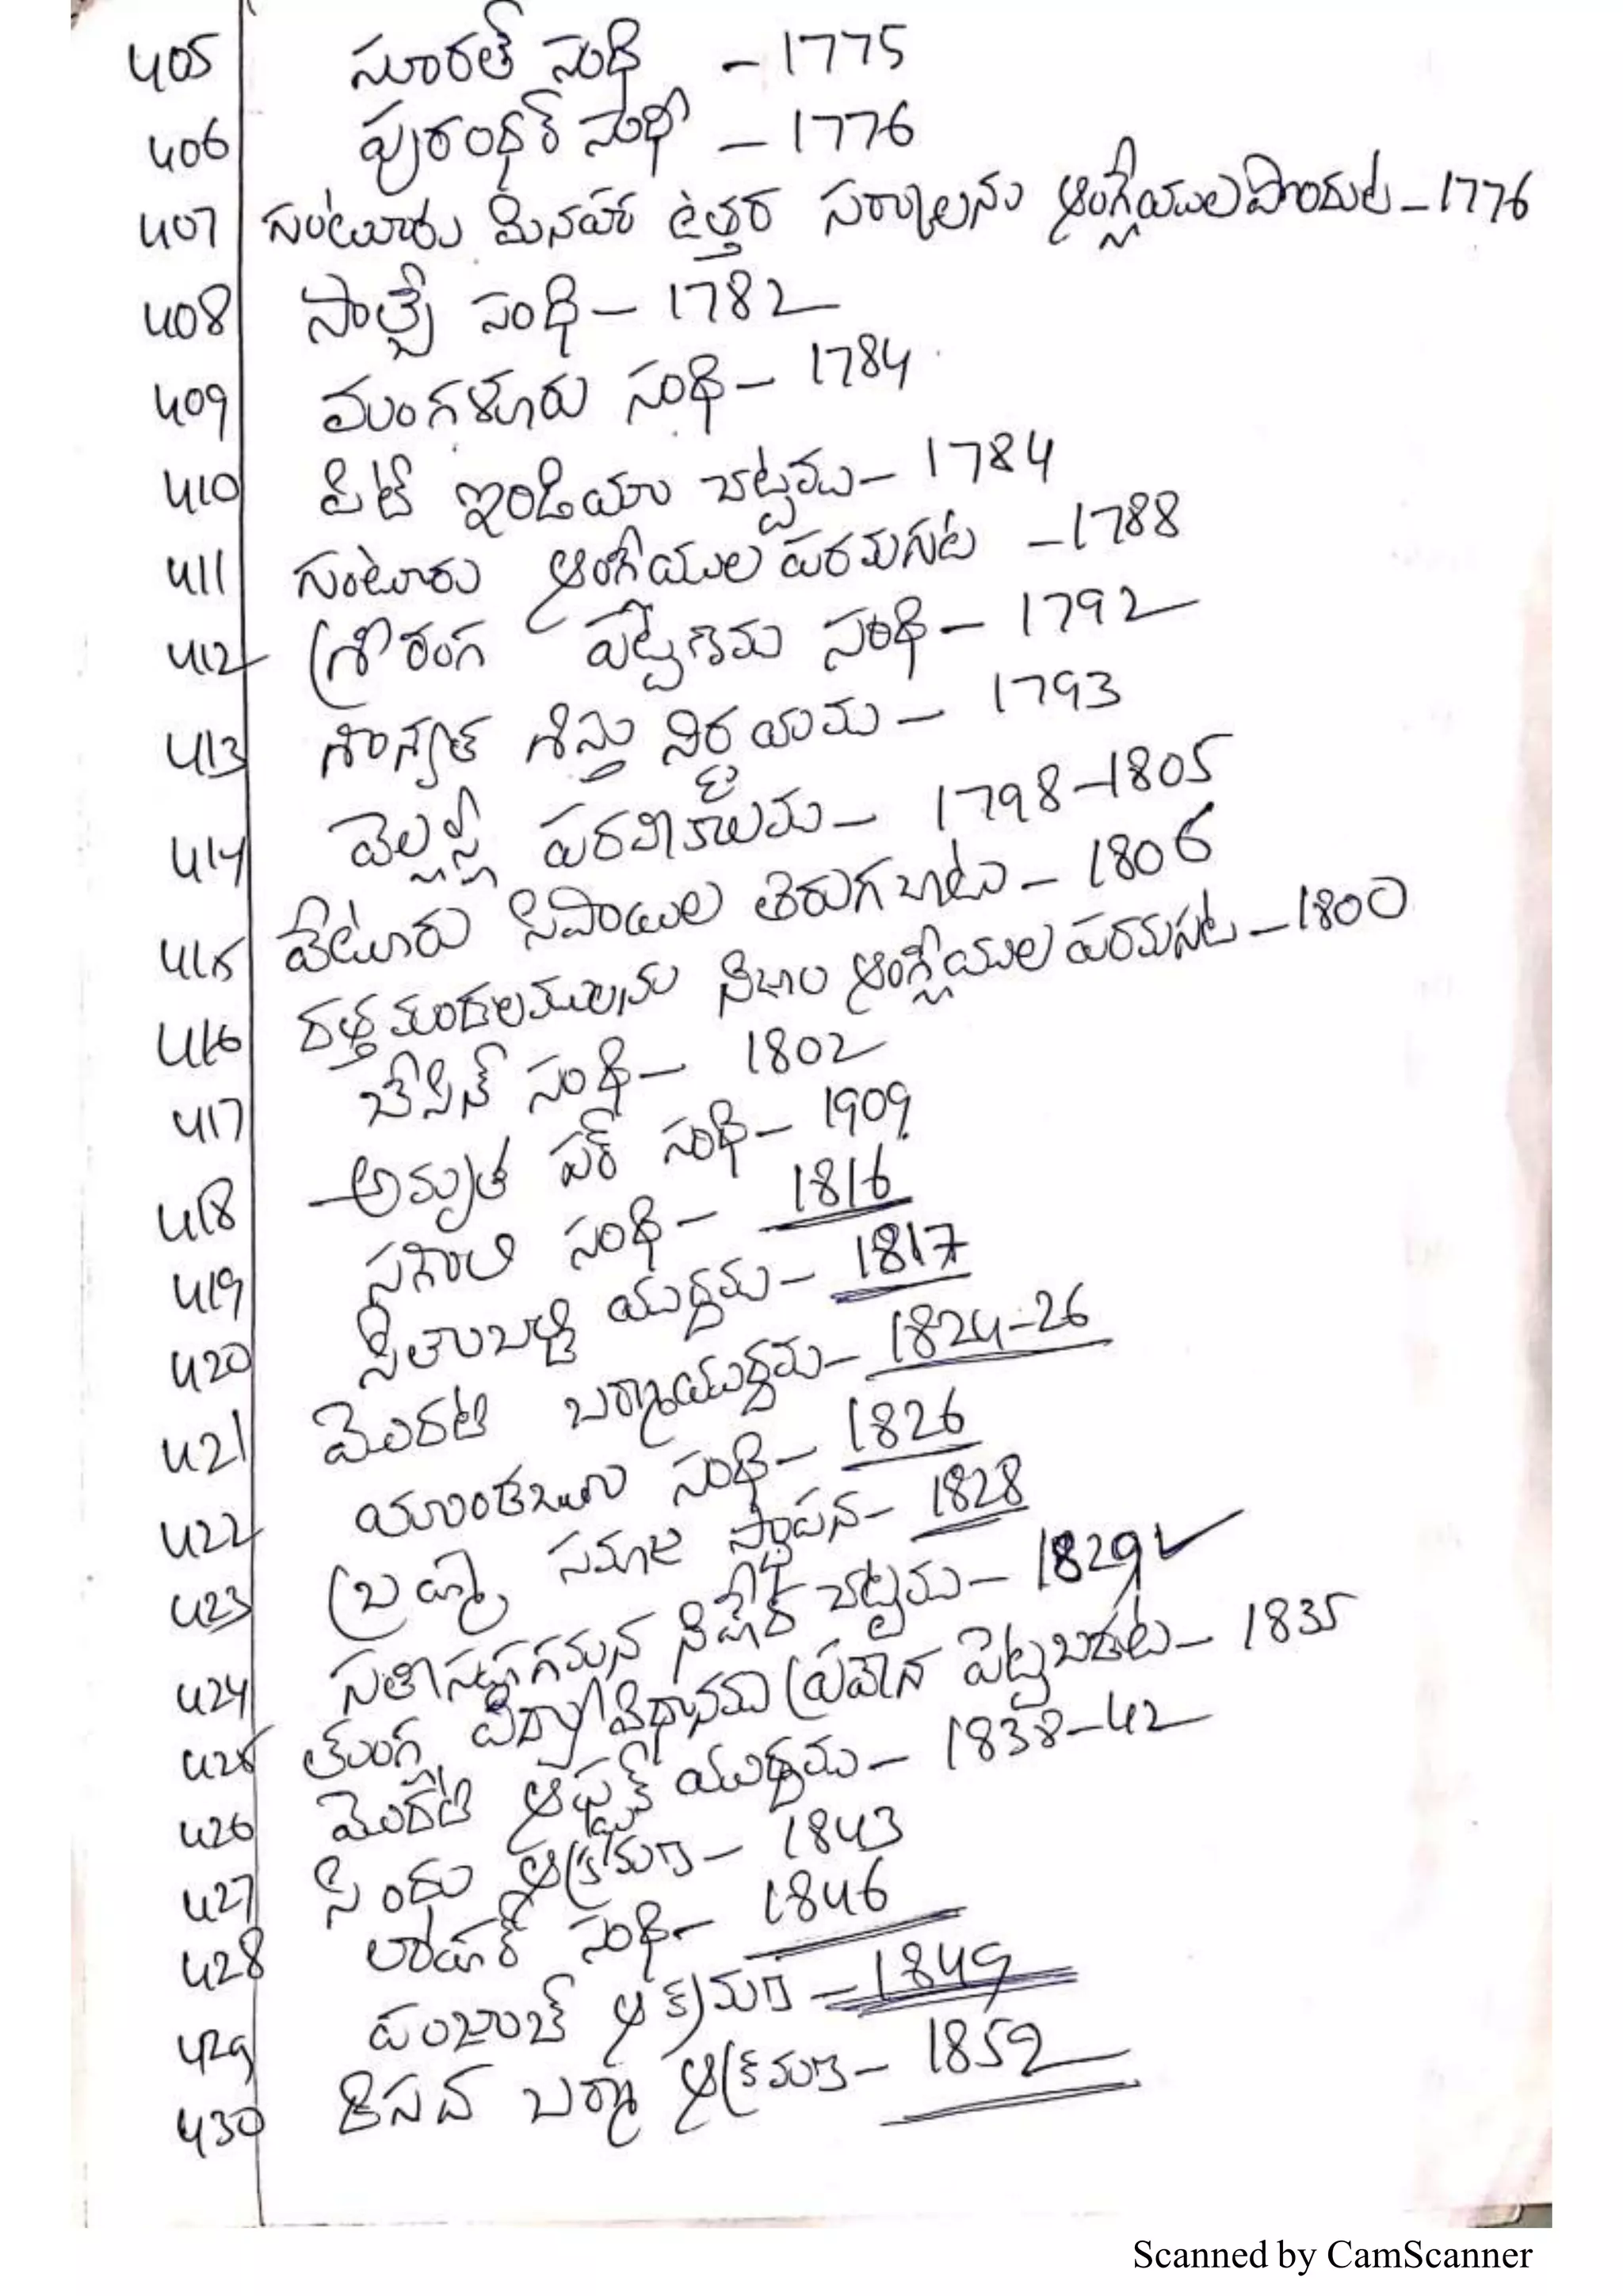 405 సూరత్ సంధి - 1775
406 పురంధర్ సంధి - 1776
407 గుంటూరు మినహా ఉత్తర సర్కాలను ఆంగ్లేయుల పొందుట - 1776
408 సాల్బే సంధి - 1782
409 మంగళూరు సంధి - 1784
410 పిట్ ఇండియా చట్టము - 1784
411 గుంటూరు ఆంగేయుల పరమగుట - 1788
412 శ్రీరంగ పట్టణము సంధి - 1792
413 శాశ్వత శిస్తు నిర్ణయము - 1793
414 వెల్లస్లీ పరిపాలనాకాలము - 1798-1805
415 వేలూరు సిపాయిల తిరుగుబాటు - 1806
416 దత్తమండలములను నిజాం ఆంగ్లేయుల పరమగుట - 1800
417 బేసిన్ సంధి - 1802
418 అమృత సర్ సంధి - 1909
419 సగౌలి సంధి - 1816
420 సీతాబల్డి యుద్ధము - 1817
421 మొదటి బర్మాయుద్ధము - 1824-26
422 యాండబూ సంధి - 1826
423 బ్రహ్మ సమాజ స్థాపన - 1828
424 సతీసహగమన నిషేధ చట్టము - 1829
425 ఆంగ్ల విద్యా విధానము ప్రవేశ పెట్టబడుట - 1835
426 మొదటి ఆఫ్ఘన్ యుద్ధము - 1838-42
427 సింధు ఆక్రమణ - 1843
428 లాహోర్ సంధి - 1846
429 పంజాబ్ ఆక్రమణ - 1849
430 దిగువ బర్మా ఆక్రమణ - 1852
Scanned by CamScanner